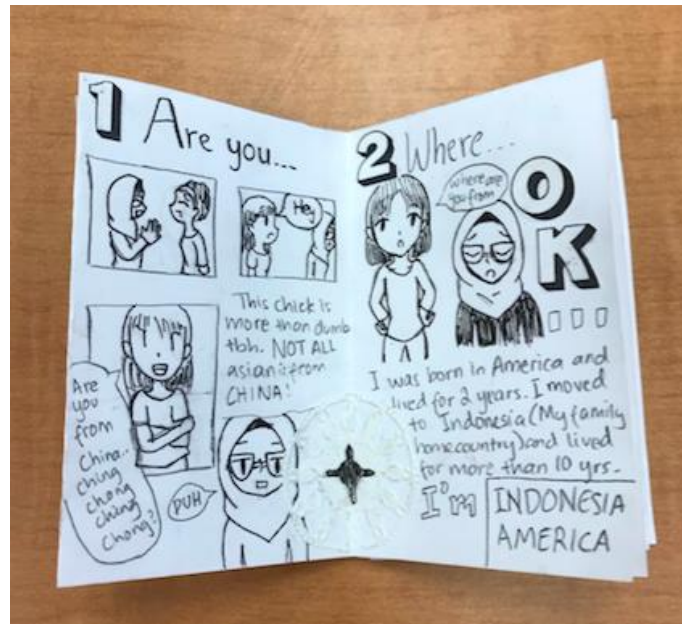 1 Are you...
Hey
This chick is
more than dumb
tbh. NOT ALL
asian is from
CHINA!
Are
you
from
China..
ching
chong
ching
chong?
PUH
2 Where...
where are
you from
OK...
I was born in America and
lived for 2 years. I moved
to Indonesia (My family
homecountry) and lived
for more than 10 yrs.
I'm
INDONESIA
AMERICA